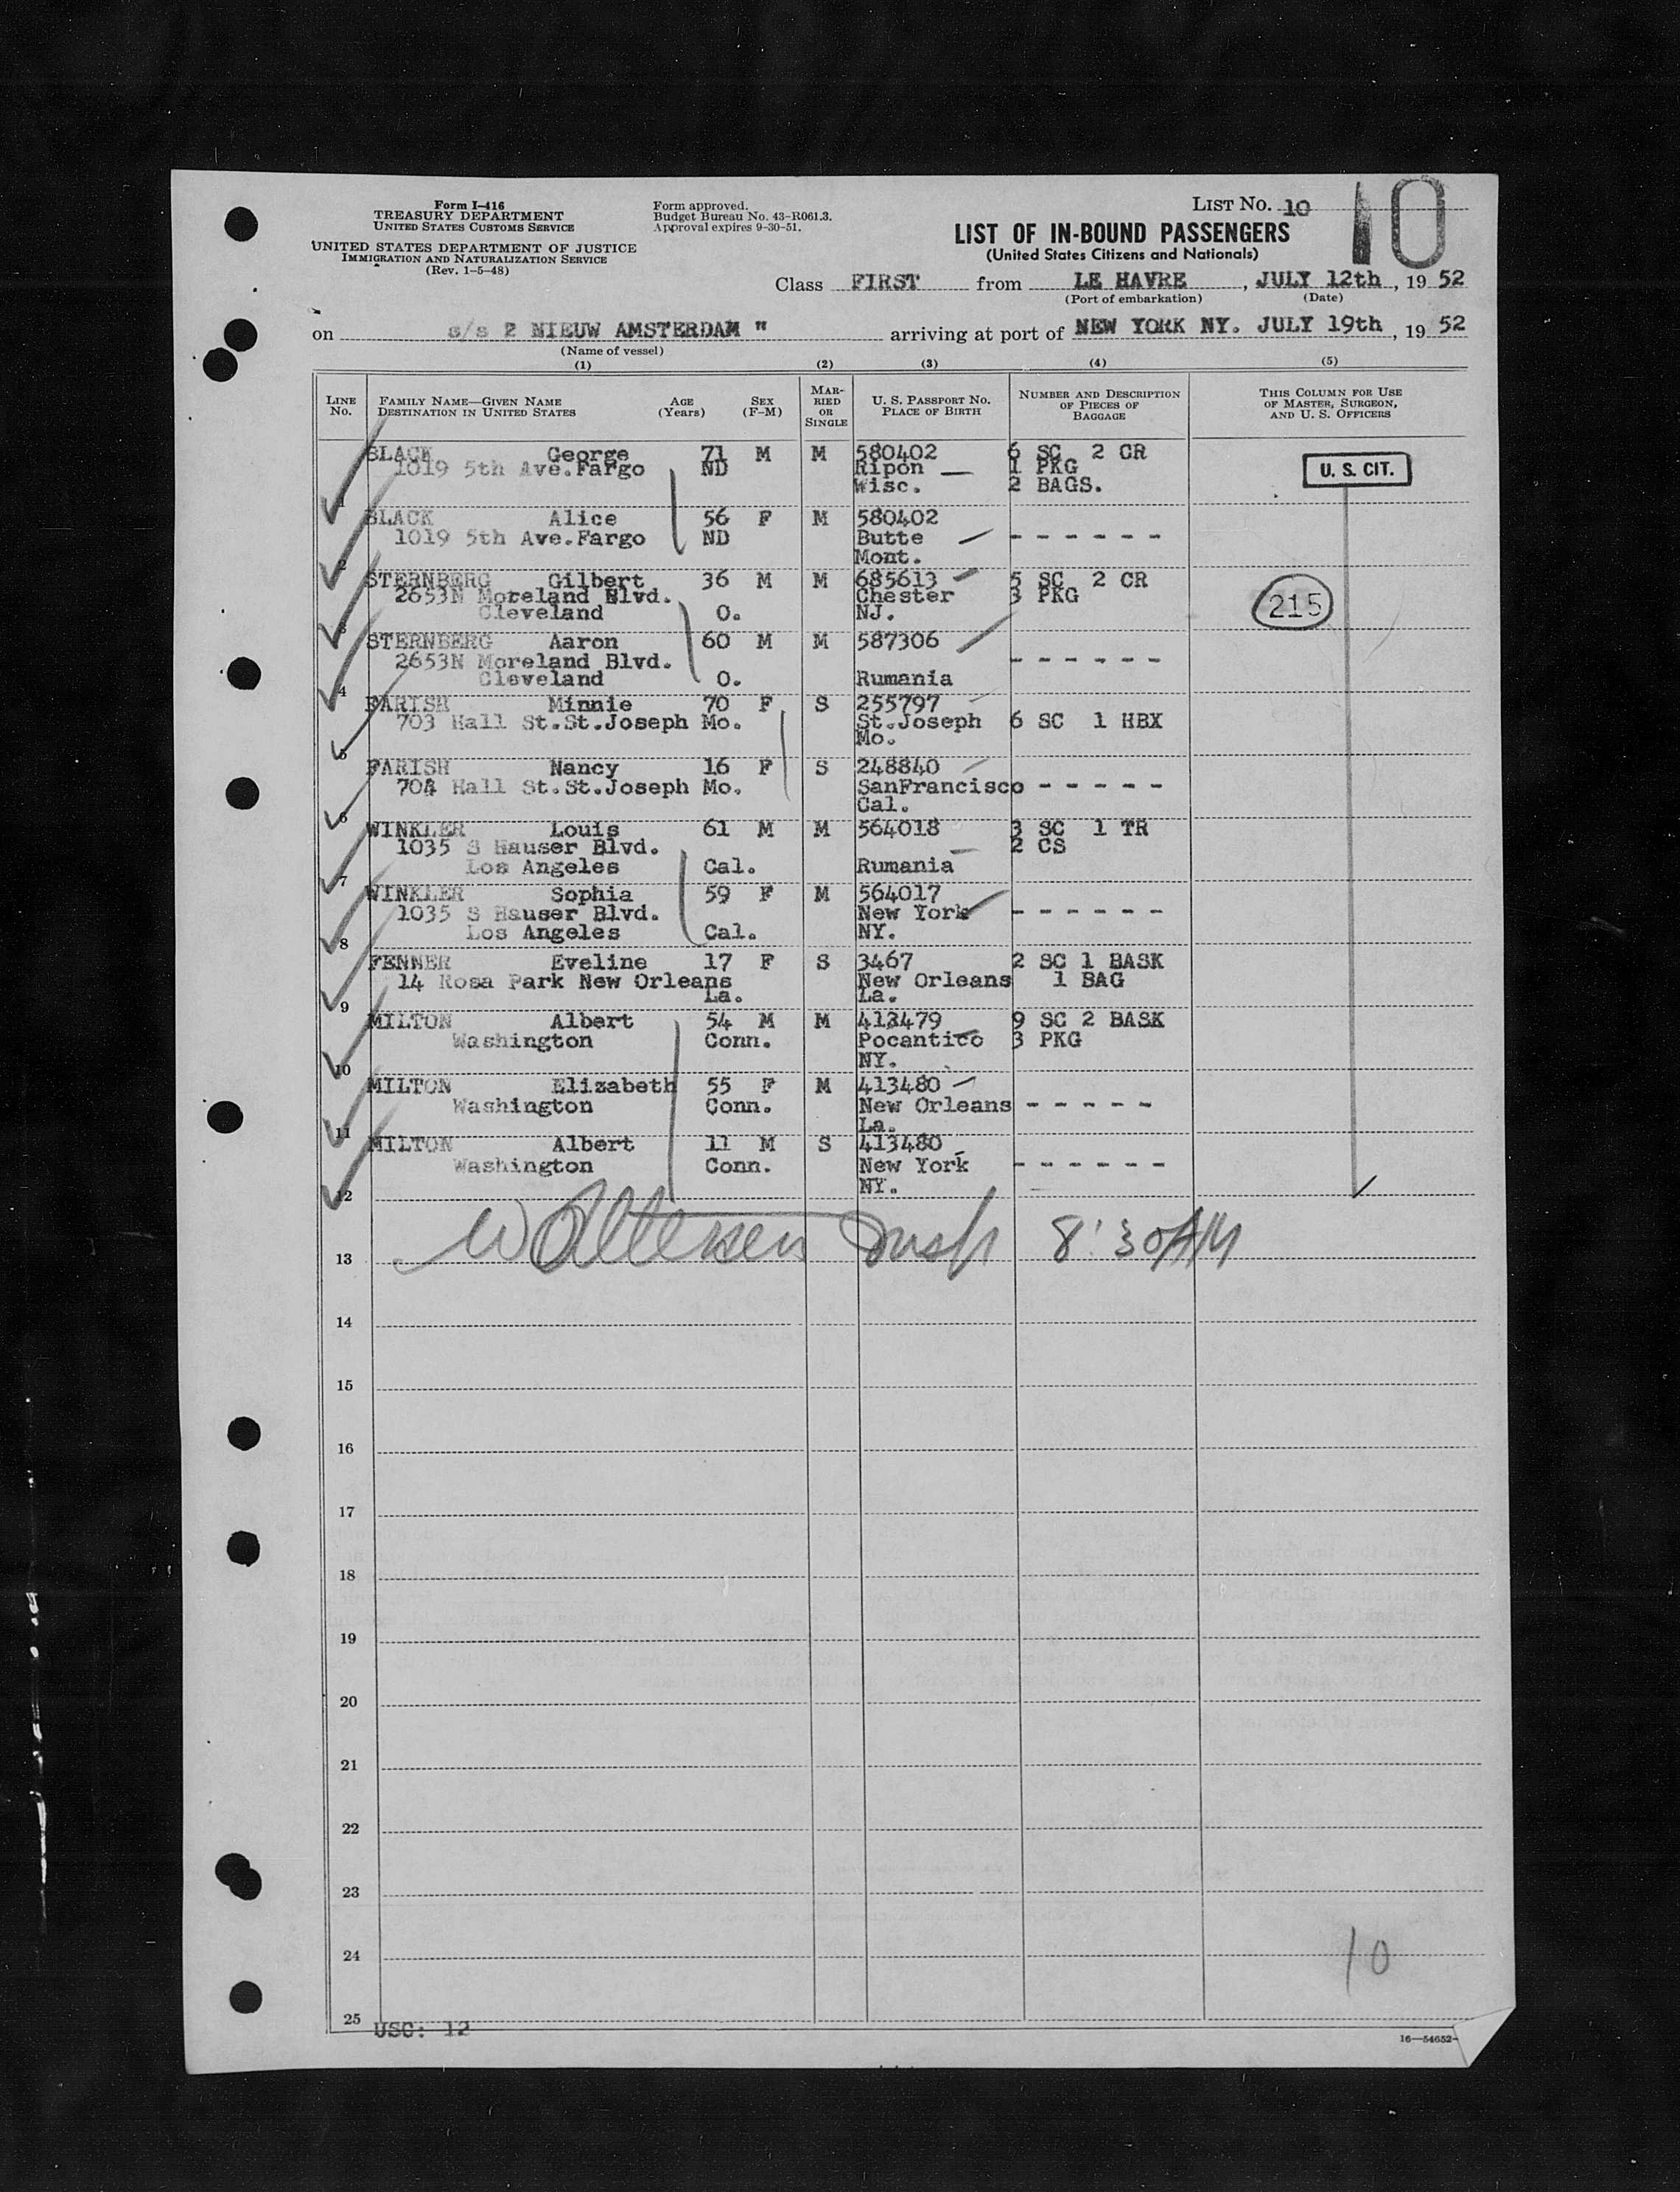 Form I-416
TREASURY DEPARTMENT
UNITED STATES CUSTOMS SERVICE
UNITED STATES DEPARTMENT OF JUSTICE
IMMIGRATION AND NATURALIZATION SERVICE
(Rev. 1-5-48)
Form approved.
Budget Bureau No. 43-R061.3.
Approval expires 9-30-51.
LIST NO. 10
10
LIST OF IN-BOUND PASSENGERS
(United States Citizens and Nationals)
Class FIRST from LE HAVRE, JULY 12th, 19 52
(Port of embarkation) (Date)
on s/s 2 NIEUW AMSTERDAM " arriving at port of NEW YORK NY. JULY 19th, 19 52
(Name of vessel)
(1) (2) (3) (4) (5)
LINE No. FAMILY NAME—GIVEN NAME DESTINATION IN UNITED STATES AGE (Years) SEX (F-M) MARRIED OR SINGLE U. S. PASSPORT NO. PLACE OF BIRTH NUMBER AND DESCRIPTION OF PIECES OF BAGGAGE THIS COLUMN FOR USE OF MASTER, SURGEON, AND U. S. OFFICERS
BLACK George 71 M M 580402 6 SC 2 CR
1019 5th Ave.Fargo ND Ripon 1 PKG U. S. CIT.
1 Wisc. 2 BAGS.
BLACK Alice 56 F M 580402
1019 5th Ave.Fargo ND Butte - - - - - -
2 Mont.
STERNBERG Gilbert 36 M M 685613 5 SC 2 CR
2653N Moreland Blvd. Chester 3 PKG 215
3 Cleveland O. NJ.
STERNBERG Aaron 60 M M 587306
2653N Moreland Blvd. - - - - - -
4 Cleveland O. Rumania
FARISH Minnie 70 F S 255797
703 Hall St.St.Joseph Mo. St.Joseph 6 SC 1 HBX
5 Mo.
FARISH Nancy 16 F S 248840
704 Hall St.St.Joseph Mo. SanFrancisco - - - - -
6 Cal.
WINKLER Louis 61 M M 564018 3 SC 1 TR
1035 S Hauser Blvd. 2 CS
7 Los Angeles Cal. Rumania
WINKLER Sophia 59 F M 564017
1035 S Hauser Blvd. New York - - - - - -
8 Los Angeles Cal. NY.
FENNER Eveline 17 F S 3467 2 SC 1 BASK
14 Rosa Park New Orleans New Orleans 1 BAG
9 La. La.
MILTON Albert 54 M M 413479 9 SC 2 BASK
Washington Conn. Pocantico 3 PKG
10 NY.
MILTON Elizabeth 55 F M 413480
Washington Conn. New Orleans - - - - -
11 La.
MILTON Albert 11 M S 413480
Washington Conn. New York - - - - - -
12 NY.
13 Insp 8:30AM
14
15
16
17
18
19
20
21
22
23
24 10
25
USC: 12
16—54652-